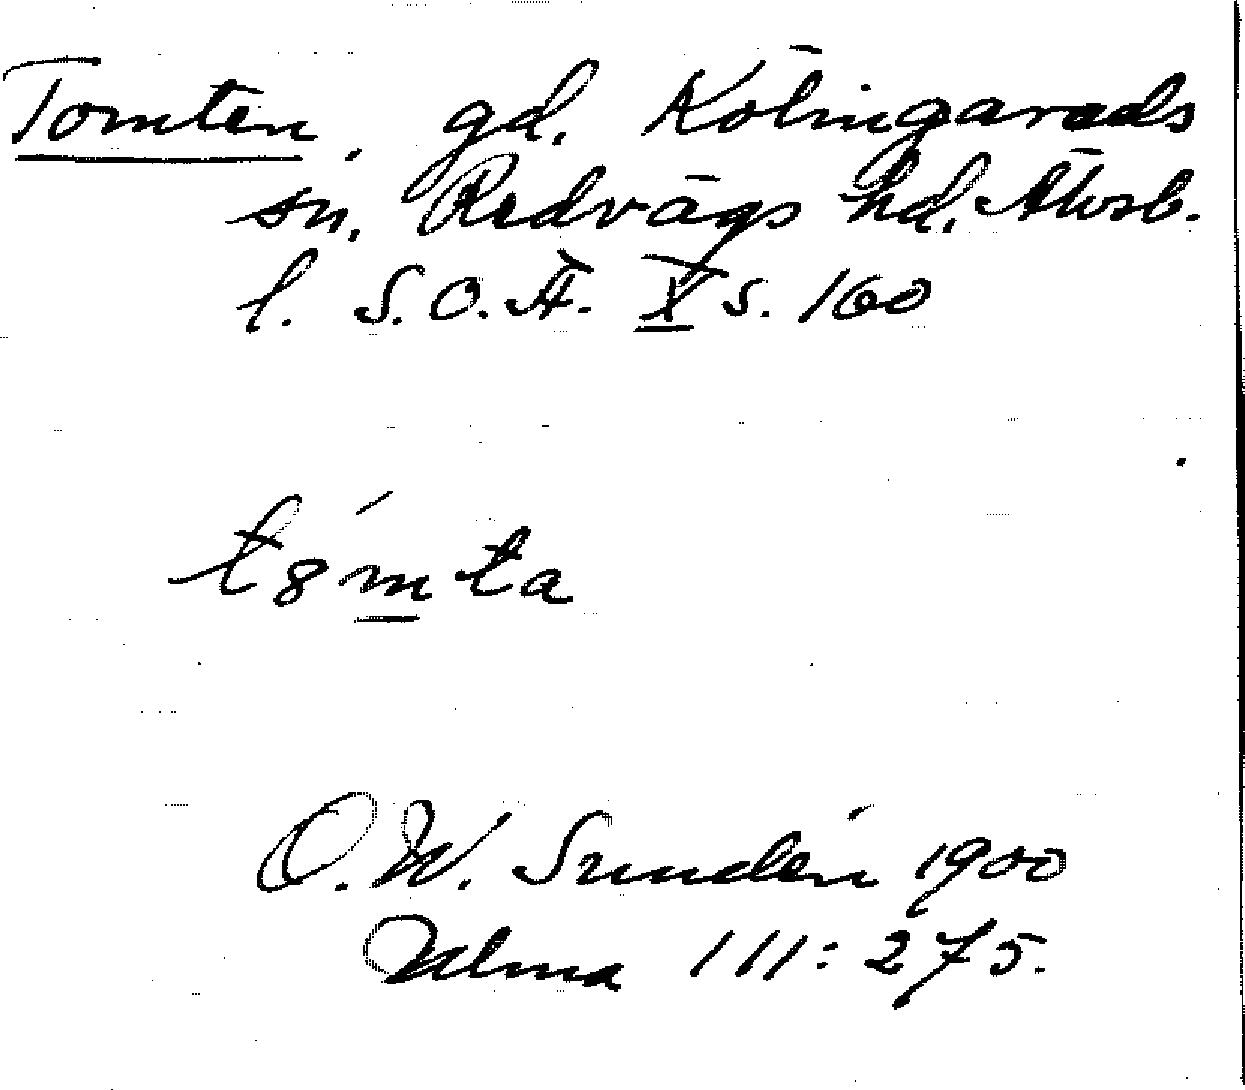 Tomten, gd. Kölingareds
sn. Redvägs hd. Älvsb.
l. S.O.Ä. X s. 160
t8́mta
O.W. Sundén 1900
Ulma 111:275.